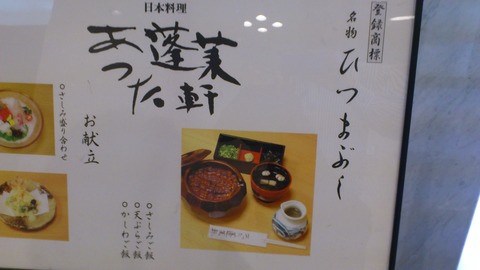 登録商標
名物
ひつまぶし
日本料理
あつた
蓬莱軒
お献立
○さしみ盛り合わせ
○さしみご飯
○天ぷらご飯
○かしわご飯